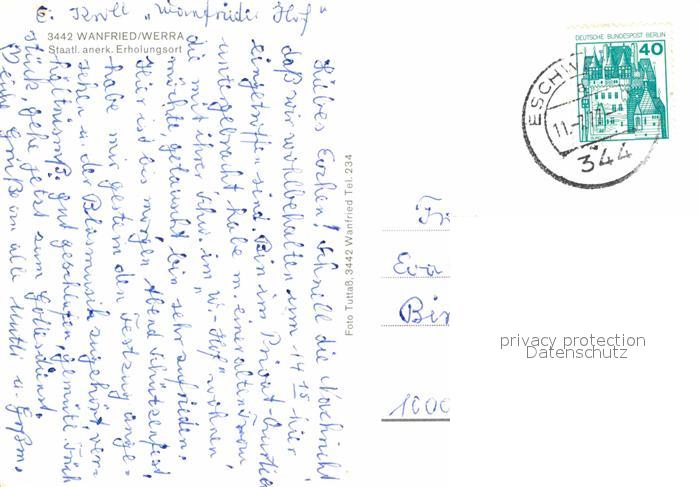 E. Kroll "Wanfrieder Hof"
3442 WANFRIED/WERRA
Staatl. anerk. Erholungsort
Liebes Evchen! Schnell die Nachricht
daß wir wohlbehalten um 14 15 hier
eingetroffen sind. Bin im Privat-Quartier
untergebracht habe m. einer alten
die mit ihrer Schw. im "W.-Hof" wohnen
möchte, getauscht bin sehr zufrieden.
Hier ist bis morgen Abend Schützenfest,
habe mir gestern den Festzug ange-
sehn u. der Blasmusik zugehört ver-
gut geschlafen, gemütl. Früh-
stück, gehe jetzt zum Gottesdienst.
Grüßen alle Mutti u.
Foto Tuttaß, 3442 Wanfried Tel. 234
DEUTSCHE BUNDESPOST BERLIN
40
ESCHW
11.-7.
344
Fr
Eva
Bir
1000
privacy protection
Datenschutz